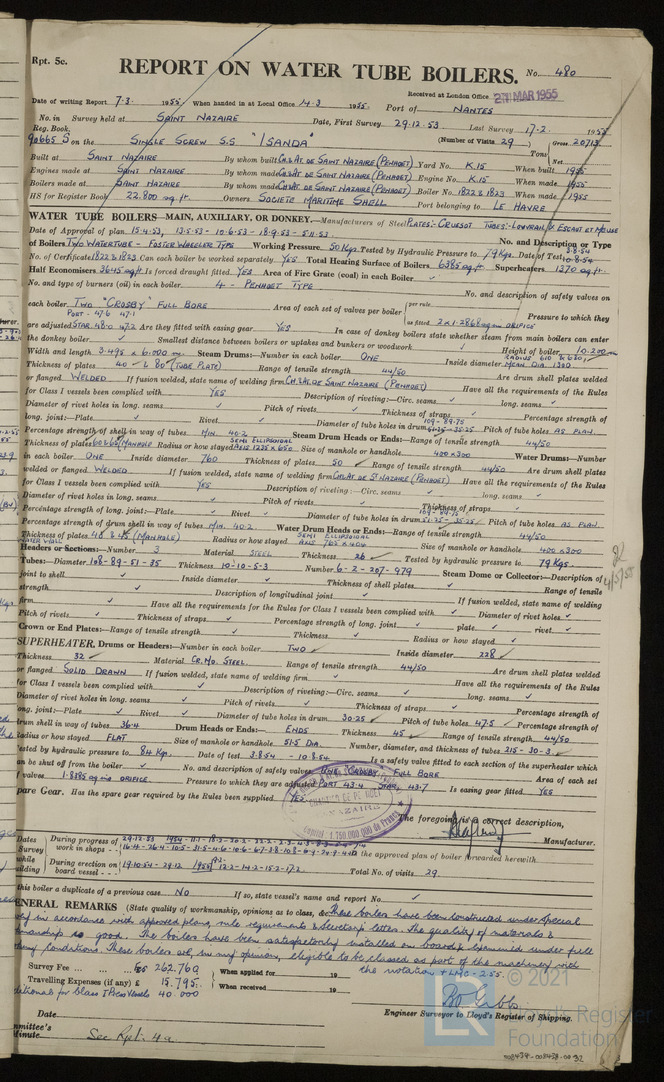 Rpt. 5c.
REPORT ON WATER TUBE BOILERS. No. 480
Received at London Office 27 MAR 1955
Date of writing Report 7.3. 1955. When handed in at Local Office 14.3 1955. Port of NANTES
No. in Survey held at SAINT NAZAIRE Date, First Survey 29.12.53 Last Survey 17.2. 1955
Reg. Book. (Number of Visits 29)
90665 S on the SINGLE SCREW S.S "ISANDA" Tons Gross 20713 Net
Built at SAINT NAZAIRE By whom built CH. & AT. DE SAINT NAZAIRE (PENHOET) Yard No. K.15 When built 1955
Engines made at SAINT NAZAIRE By whom made CH. & AT. DE SAINT NAZAIRE (PENHOET) Engine No. K.15 When made 1955
Boilers made at SAINT NAZAIRE By whom made CH. & AT. DE SAINT NAZAIRE (PENHOET) Boiler No. 1822 & 1823 When made 1955
HS for Register Book 22.800 sq. ft. Owners SOCIETE MARITIME SHELL Port belonging to LE HAVRE
WATER TUBE BOILERS—MAIN, AUXILIARY, OR DONKEY.—Manufacturers of Steel PLATES: CREUSOT TUBES: LOUVROIL & ESCAUT ET MEUSE
Date of Approval of plan 15.4.53, 13.5.53 - 10.6.53 - 18.9.53 - 5.11.53. No. and Description or Type
of Boilers TWO WATERTUBE - FOSTER WHEELER TYPE Working Pressure 50 Kgs. Tested by Hydraulic Pressure to 79 Kgs. Date of Test 3.8.54 10.8.54
No. of Certificate 1822 & 1823 Can each boiler be worked separately YES Total Heating Surface of Boilers 6385 sq. ft. Superheaters 1370 sq. ft.
Half Economisers 3645 sq ft Is forced draught fitted YES Area of Fire Grate (coal) in each Boiler ✓
No. and type of burners (oil) in each boiler 4 - PENHOET TYPE No. and description of safety valves on
each boiler TWO "CROSBY" FULL BORE Area of each set of valves per boiler per rule as fitted 2 x 1.2868 sq ins ORIFICE Pressure to which they
PORT - 47.6 47.1
are adjusted STAR 48.0 47.2 Are they fitted with easing gear YES In case of donkey boilers state whether steam from main boilers can enter
the donkey boiler ✓ Smallest distance between boilers or uptakes and bunkers or woodwork ✓ Height of boiler 10.200 m
Width and length 3.495 x 6.000 m. Steam Drums:—Number in each boiler ONE Inside diameter RADIUS 610 & 630, MEAN DIA 1300
Thickness of plates 40 & 80 (TUBE PLATE) Range of tensile strength 44/50 Are drum shell plates welded
or flanged WELDED If fusion welded, state name of welding firm CH. & AT. DE SAINT NAZAIRE (PENHOET) Have all the requirements of the Rules
for Class I vessels been complied with YES Description of riveting:—Cir. seams ✓ long. seams ✓
Diameter of rivet holes in long. seams ✓ Pitch of rivets ✓ Thickness of straps ✓ Percentage strength of
long. joint:—Plate ✓ Rivet ✓ Diameter of tube holes in drum 109-89.75 51.25-35.25 Pitch of tube holes AS PLAN
Percentage strength of shell in way of tubes MIN. 40.2 Steam Drum Heads or Ends:—Range of tensile strength 44/50
Thickness of plates (MANHOLE) Radius or how stayed SEMI ELLIPSOIDAL AXIS 1235 x 650 Size of manhole or handhole 400 x 300 Water Drums:—Number
in each boiler ONE Inside diameter 760 Thickness of plates 50 Range of tensile strength 44/50 Are drum shell plates
welded or flanged WELDED If fusion welded, state name of welding firm CH. & AT DE ST NAZAIRE (PENHOET) Have all the requirements of the Rules
for Class I vessels been complied with YES Description of riveting:—Circ. seams ✓ long. seams ✓
Diameter of rivet holes in long. seams ✓ Pitch of rivets ✓ Thickness of straps ✓
Percentage strength of long. joint:—Plate ✓ Rivet ✓ Diameter of tube holes in drum 109-89.75 51.25-35.25 Pitch of tube holes AS PLAN
Percentage strength of drum shell in way of tubes MIN. 40.2 Water Drum Heads or Ends:—Range of tensile strength 44/50
Thickness of plates 40 & 45 (MANHOLE) Radius or how stayed SEMI ELLIPSOIDAL AXIS 765 x 404 Size of manhole or handhole 400 x 300
WATER WALL
Headers or Sections:—Number 3 Material STEEL Thickness 26 Tested by hydraulic pressure to 79 Kgs.
Tubes:—Diameter 108-89-51-35 Thickness 10-10-5-3 Number 6-2-207-979 Steam Dome or Collector:—Description of
joint to shell ✓ Inside diameter ✓ Thickness of shell plates ✓ Range of tensile
strength ✓ Description of longitudinal joint ✓ If fusion welded, state name of welding
firm ✓ Have all the requirements for the Rules for Class I vessels been complied with ✓ Diameter of rivet holes ✓
Pitch of rivets ✓ Thickness of straps ✓ Percentage strength of long. joint ✓ plate ✓ rivet ✓
Crown or End Plates:—Range of tensile strength ✓ Thickness ✓ Radius or how stayed ✓
SUPERHEATER. Drums or Headers:—Number in each boiler TWO Inside diameter 228
Thickness 32 Material CR. MO. STEEL Range of tensile strength 44/50 Are drum shell plates welded
or flanged SOLID DRAWN If fusion welded, state name of welding firm ✓ Have all the requirements of the Rules
for Class I vessels been complied with ✓ Description of riveting:—Circ. seams ✓ long. seams ✓
Diameter of rivet holes in long. seams ✓ Pitch of rivets ✓ Thickness of straps ✓ Percentage strength of
long. joint:—Plate ✓ Rivet ✓ Diameter of tube holes in drum 30.25 Pitch of tube holes 47.5 Percentage strength of
drum shell in way of tubes 36.4 Drum Heads or Ends:— ENDS Thickness 45 Range of tensile strength 44/50
Radius or how stayed FLAT Size of manhole or handhole 51.5 DIA. Number, diameter, and thickness of tubes 315-30-3
Tested by hydraulic pressure to 84 Kgs. Date of test 3.8.54 - 10.8.54 Is a safety valve fitted to each section of the superheater which
can be shut off from the boiler ✓ No. and description of safety valves ONE "CROSBY" FULL BORE Area of each set
of valves 1.8385 sq ins ORIFICE. Pressure to which they are adjusted PORT 43.4 STAR. 43.7 Is easing gear fitted YES
Spare Gear. Has the spare gear required by the Rules been supplied YES
The foregoing is a correct description,
Manufacturer.
Dates of Survey while building
During progress of work in shops - -
During erection on board vessel - - - 19.10.54 - 29.12 1955 12.2-14.2-15.2-17.2.
Is the approved plan of boiler forwarded herewith
Total No. of visits 29
Is this boiler a duplicate of a previous case No If so, state vessel's name and report No. ✓
GENERAL REMARKS (State quality of workmanship, opinions as to class, &c. These boilers have been constructed under special
survey in accordance with approved plans, rule requirements & Secretary's letters. The quality of materials &
workmanship is good. The boilers have been satisfactorily installed on board & examined under full
working conditions. These boilers are, in my opinion, eligible to be classed as part of the machinery with
the notation + LMC - 2.55.
Survey Fee ... ... ... Frs 262.760 When applied for 19
Travelling Expenses (if any) £ 15.795. When received 19
Additional for Class I Press Vessels 40.000
B. Gibbs
Engineer Surveyor to Lloyd's Register of Shipping.
Date
Committee's Minute See Rpt. 4a
© 2021
Lloyd's Register
Foundation
008439-008458-0032